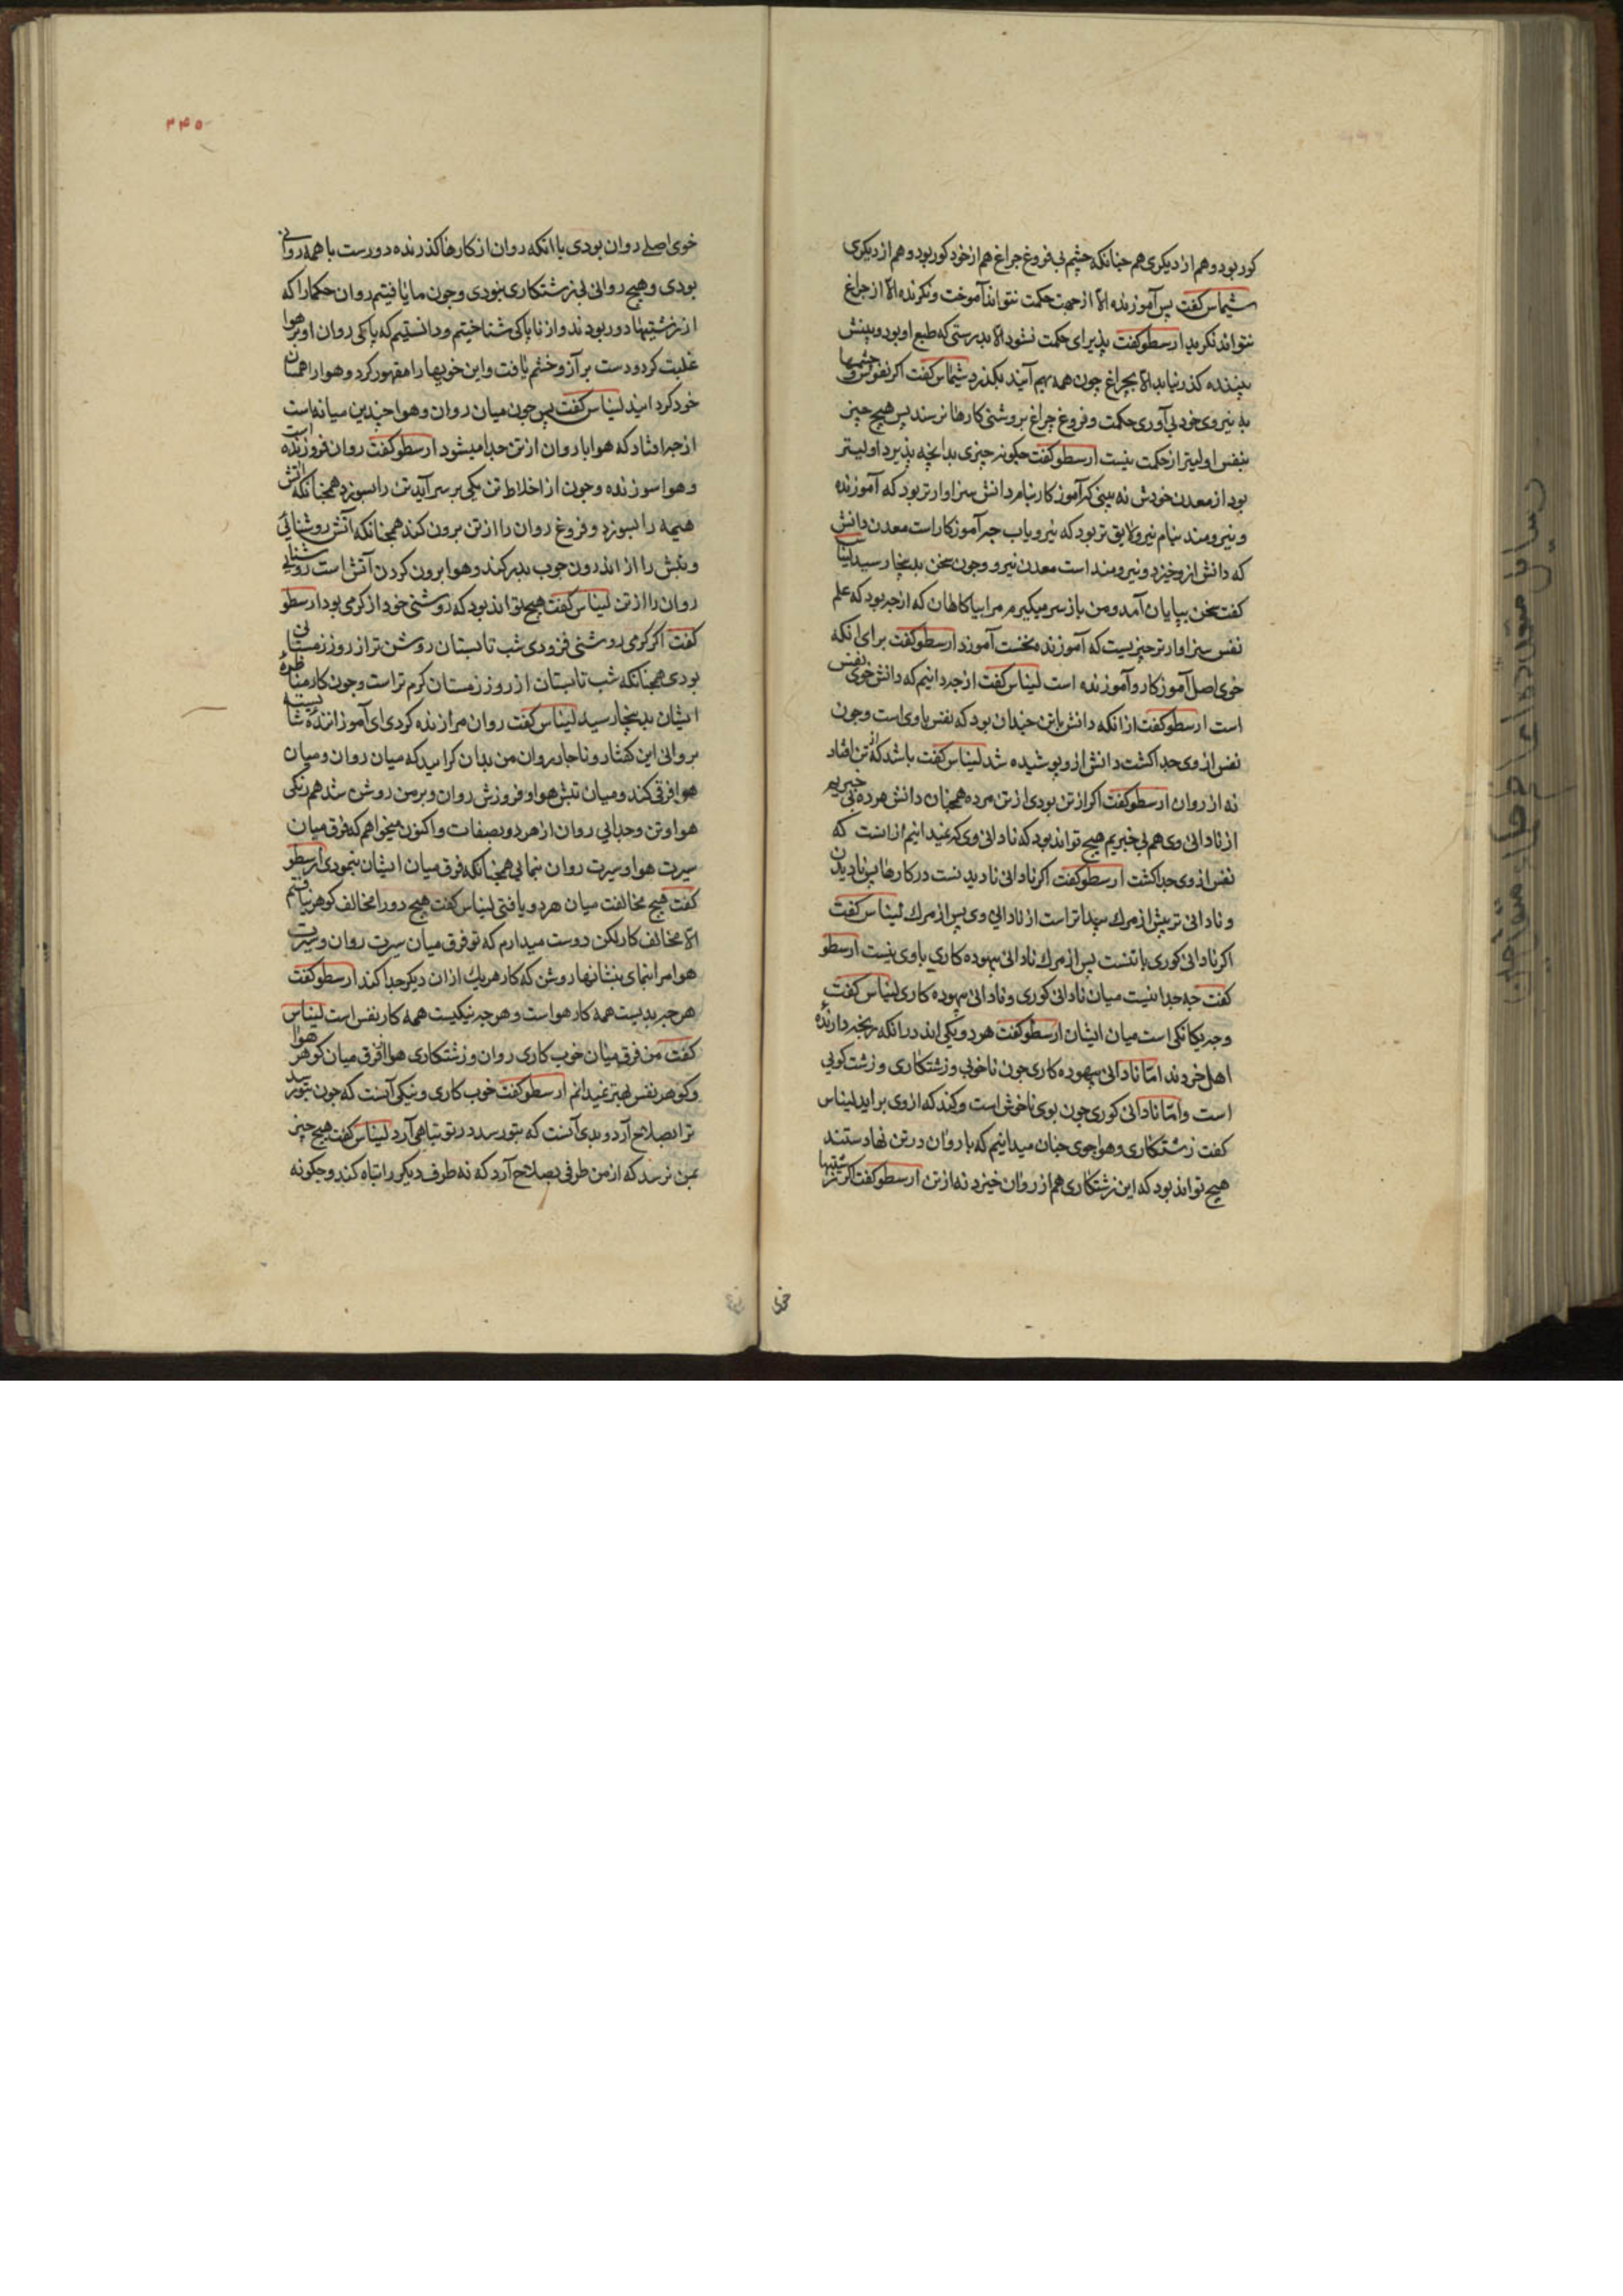 کور بود و هم از دیکری هم چنانکه چشم بی فروغ چراغ هم از خود کور بود و هم از دیکری
شیماس کفت پس آموزنده الا از جهت حکمت نتواند آموخت و نکرنده الا از چراغ
نتواند نکرید ارسطو کفت پذیرای حکمت نشود الا بدرستی که طبع او بود و بینش
بیننده کذر نیابد الا بچراغ چون همه بهم آیند بکذرد شیماس کفت اکر نفوس و چشمها
به نیروی خود بی آوری حکمت و فروغ چراغ بروشنی کارها نرسند پس هیچ چیز
بنفس اولیتر از حکمت نیست ارسطو کفت چکونه چیزی بدانچه پذیرد اولیتر
بود از معدن خودش نه بینی که آموزکار بنام دانش سزاوارتر بود که آموزنده
و نیرومند بنام نیرو لایق تر بود که نیرویاب چه آموزکار است معدن دانش
که دانش ازو خیزد و نیرومند است معدن نیرو و چون سخن بدینجا رسید لیناس
کفت سخن بپایان آمد و من باز سر میکیرم مرا بیاکاهان که از چه بود که علم
نفس سزاوارتر چیزیست که آموزنده نخست آموزد ارسطو کفت برای آنکه
خوی اصل آموزکار و آموزنده است لیناس کفت از چه دانیم که دانش خوی نفس
است ارسطو کفت از آنکه دانش با تن چندان بود که نفس با وی است و چون
نفس از وی جدا کشت دانش ازو پوشیده شد لیناس کفت باشد که از تن افتاد
نه از روان ارسطو کفت اکر از تن بودی از تن مرده همچنان دانش هرده بی خبریم
از نادانی وی هم بی خبریم هیچ تواند بود که نادانی وی که نمیدانیم از آنست که
نفس از وی جدا کشت ارسطو کفت اکر نادانی نادیدنست در کارها پس نادیدن
و نادانی تن پیش از مرک پیداتر است از نادانی وی پس از مرک لیناس کفت
اکر نادانی کوری با تنست پس از مرک نادانی بیهوده کاری با وی نیست ارسطو
کفت چه جداییست میان نادانی کوری و نادانی بیهوده کاری لیناس کفت
و چه یکانکی است میان ایشان ارسطو کفت هر دو یکی اند در آنکه رنجه دارنده
اهل خردند اما نادانی بیهوده کاری چون ناخوبی و زشتکاری و زشت کویی
است و اما نادانی کوری چون بوی ناخوش است و کند که از وی براید لیناس
کفت زشتکاری و هواجوی چنان میدانیم که با روان در تن نهادستند
هیچ تواند بود که این زشتکاری هم از روان خیزد نه از تن ارسطو کفت اکر زشتیها
خوی
۴۴۵
خوی اصلی روان بودی با آنکه روان از کارها کذرنده دورست با همه روانی
بودی و هیچ روانی بی زشتکاری نبودی و چون ما یافتیم روان حکما را که
از زشتیها دور بودند و از ناپاکی شناختیم و دانستیم که پاکی روان او بر هوا
غلبت کرد و دست بر آز و خشم یافت و این خویها را مقهور کرد و هوا را همسان
خود کرد ایند لیناس کفت پس چون میان روان و هوا چندین میانه است
از چه افتاد که هوا با روان از تن جدا میشود ارسطو کفت روان فروزنده است
و هوا سوزنده و چون از اخلاط تن یکی بر سر آید تن را بسوزد همچنانکه آتش
هیمه را بسوزد و فروغ روان را از تن برون کند همچنانکه آتش روشنائی
و تبش را از اندرون چوب بدر کند و هوا برون کردن آتش است روشنایی
روان را از تن لیناس کفت هیچ تواند بود که روشنی خود از کرمی بود ارسطو
کفت اکر کرمی روشنی فزودی شب تابستان روشن تر از روز زمستانی
بودی همچنانکه شب تابستان از روز زمستان کرم تر است و چون کار مناظرهٔ
ایشان بدینجا رسید لیناس کفت روان مرا زنده کردی ای آموزاننده شایسته
بروانی این کفتار و ناچار روان من بدان کراید که میان روان و میان
هوا فرقی کند و میان تبش هوا و فروزش روان و بر من روشن شد همرنکی
هوا و تن و جدایی روان از هر دو بصفات و اکنون میخواهم که فرق میان
سیرت هوا و سیرت روان بنمایی همچنانکه فرق میان ایشان بنمودی ارسطو
کفت هیچ مخالفت میان هر دو یافتی لیناس کفت هیچ دو را مخالف کوهر نیافتم
الا مخالف کار لکن دوست میدارم که تو فرق میان سیرت روان و سیرت
هوا مرا بنمای بنشانها روشن که کار هریک از آن دیکر جدا کند ارسطو کفت
هر چه بدیست همه کار هواست و هر چه نیکیست همه کار نفس است لیناس
کفت من فرق میان خوب کاری روان و زشتکاری هوا از فرق میان کوهر هوا
و کوهر نفس بهتر نمیدانم ارسطو کفت خوب کاری و نیکی آنست که چون بتو رسد
ترا بصلاح آرد و بدی آنست که بتو رسد در تو تباهی آرد لیناس کفت هیچ چیز
بمن نرسد که از من طرفی بصلاح آرد که نه طرف دیکر را تباه کند و چکونه